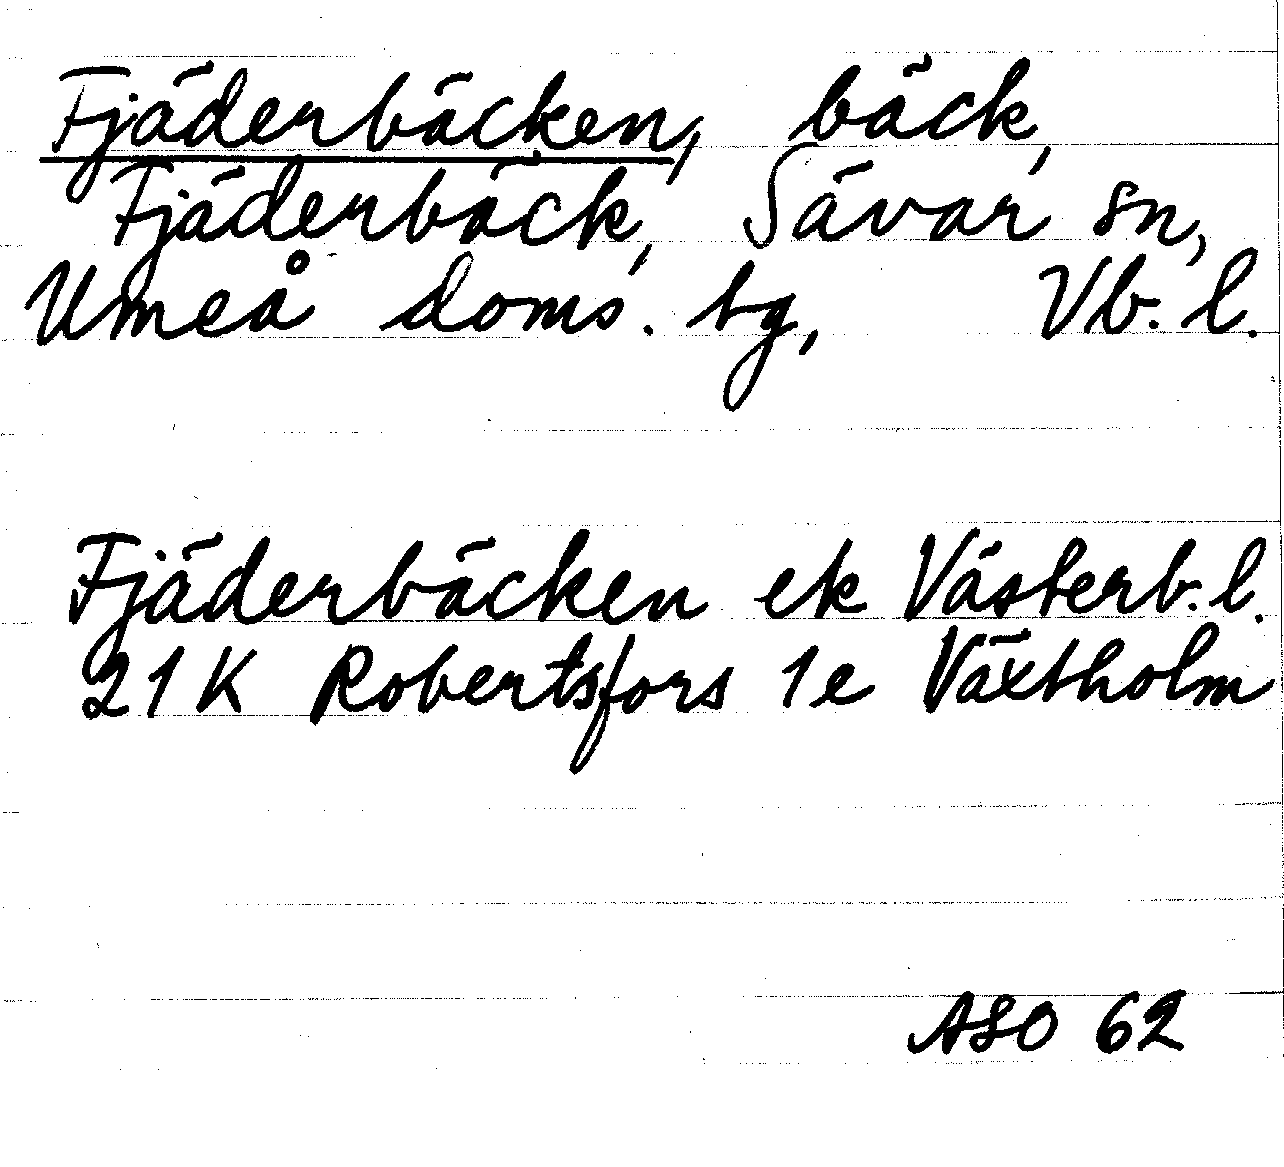 Fjäderbäcken, bäck,
Fjäderbäck, Sävar sn,
Umeå doms. tg, Vb. l.
Fjäderbäcken ek Västerb. l.
21 K Robertsfors 1e Växtholm
ASO 62